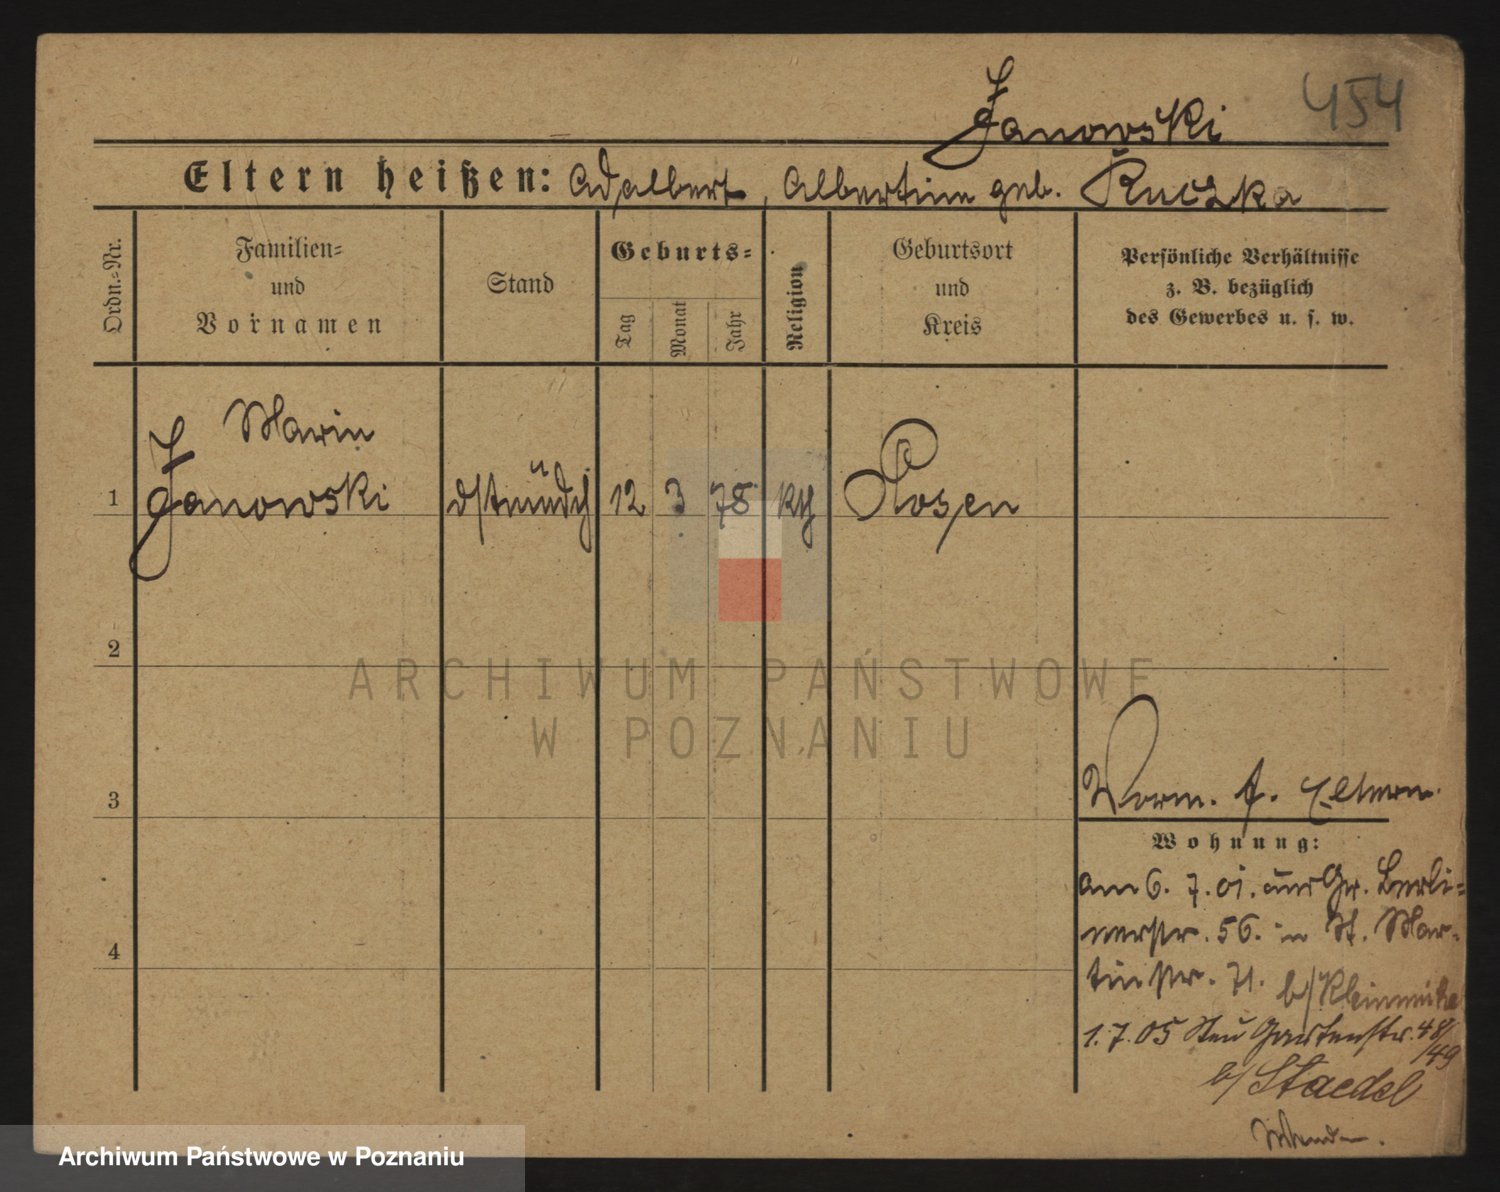 454
Janowski
Eltern heißen: Adalbert, Albertine geb. Ruczka
Ordn.-Nr.
Familien-
und
Vornamen
Stand
Geburts-
Tag
Monat
Jahr
Religion
Geburtsort
und
Kreis
Persönliche Verhältnisse
z. B. bezüglich
des Gewerbes u. s. w.
Marie
1 Janowski dstmdch 12 3 78 kth Posen
2
ARCHIWUM PAŃSTWOWE
W POZNANIU
3
Vorm. f. Eltern.
Wohnung:
am 6. 7. 01. aus Gr. Berli-
nerstr. 56. in St. Mar-
tinstr. 71. b/
4
1. 7. 05 Neu Gartenstr. 48/
/49
b/ Staedel
Wenden.
Archiwum Państwowe w Poznaniu